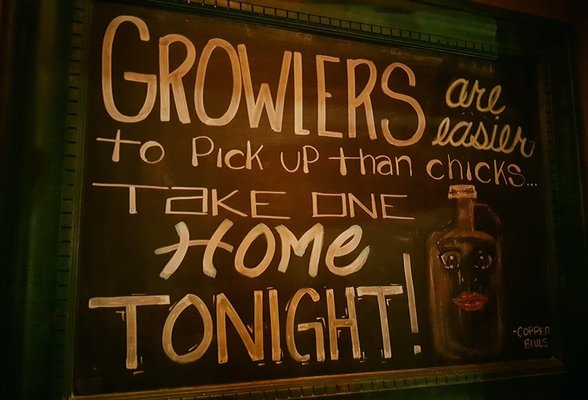 GROWLERS are
easier
to Pick up than chicks...
TAKE ONE
HOME
TONIGHT!
-COPPER
BLUES